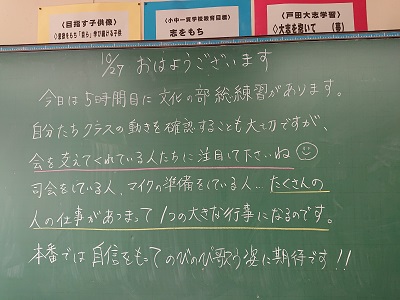 ＜目指す子供像＞
＜小中一貫学校教育目標＞
志をもち
＜戸田大志学習＞
◇大志を抱いて　（夢）
10/27 おはようございます
今日は5時間目に文化の部総練習があります。
自分たちクラスの動きを確認することも大切ですが、
会を支えてくれている人たちに注目して下さいね
司会をしている人、マイクの準備をしている人… たくさんの
人の仕事があつまって 1つの大きな行事になるのです。
本番では自信をもってのびのび歌う姿に期待です!!